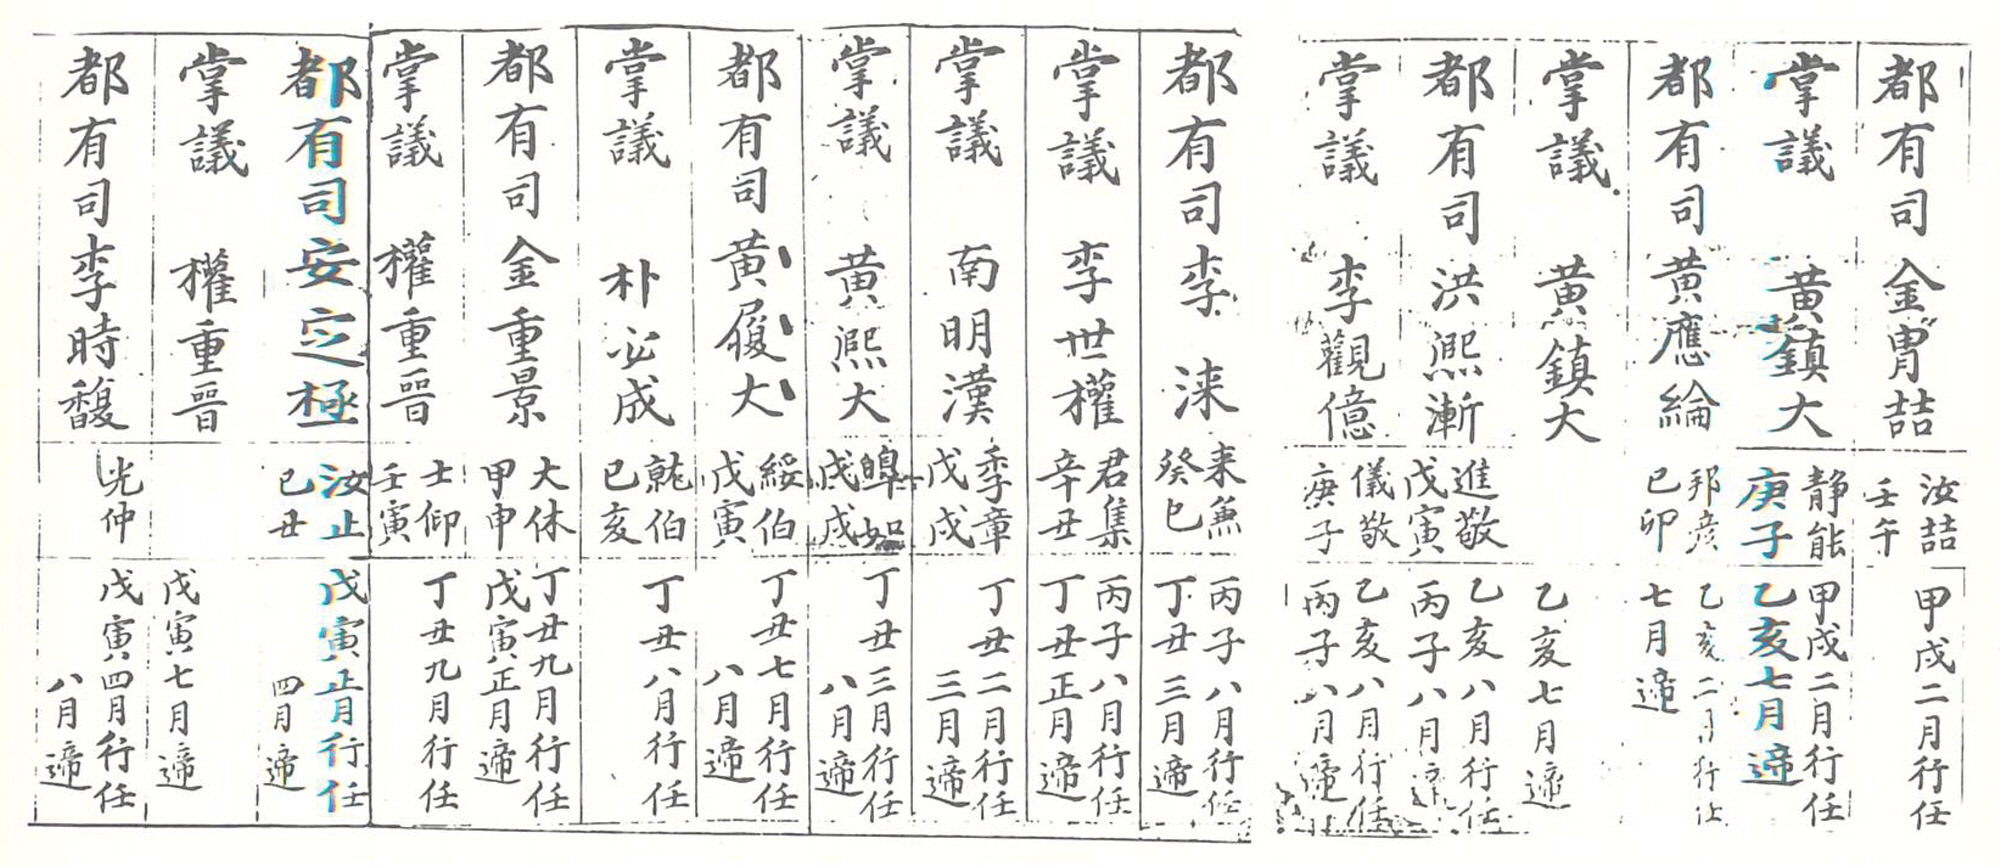 都有司 金胄喆 汝喆 壬午 甲戌二月行任
掌議 黃鎮大 靜能 庚子 甲戌二月行任 乙亥七月遆
都有司 黃應綸 邦彦 己卯 乙亥二月行任 七月遆
掌議 黃鎮大 乙亥七月遆
都有司 洪熙漸 進敬 戊寅 乙亥八月行任 丙子八月遆
掌議 李觀億 儀敬 庚子 乙亥八月行任 丙子八月遆
都有司 李涞 来焦 癸巳 丙子八月行任 丁丑三月遆
掌議 李世權 君集 辛丑 丙子八月行任 丁丑正月遆
掌議 南明漢 季章 戊戌 丁丑二月行任 三月遆
掌議 黃熙大 皥如 戊戌 丁丑三月行任 八月遆
都有司 黃履大 綏伯 戊寅 丁丑七月行任 八月遆
掌議 朴必成 就伯 己亥 丁丑八月行任
都有司 金重景 大休 甲申 丁丑九月行任 戊寅正月遆
掌議 權重晉 士仰 壬寅 丁丑九月行任
都有司 安定極 汝止 己丑 戊寅正月行任 四月遆
掌議 權重晉 戊寅七月遆
都有司 李時馥 光仲 戊寅四月行任 八月遆